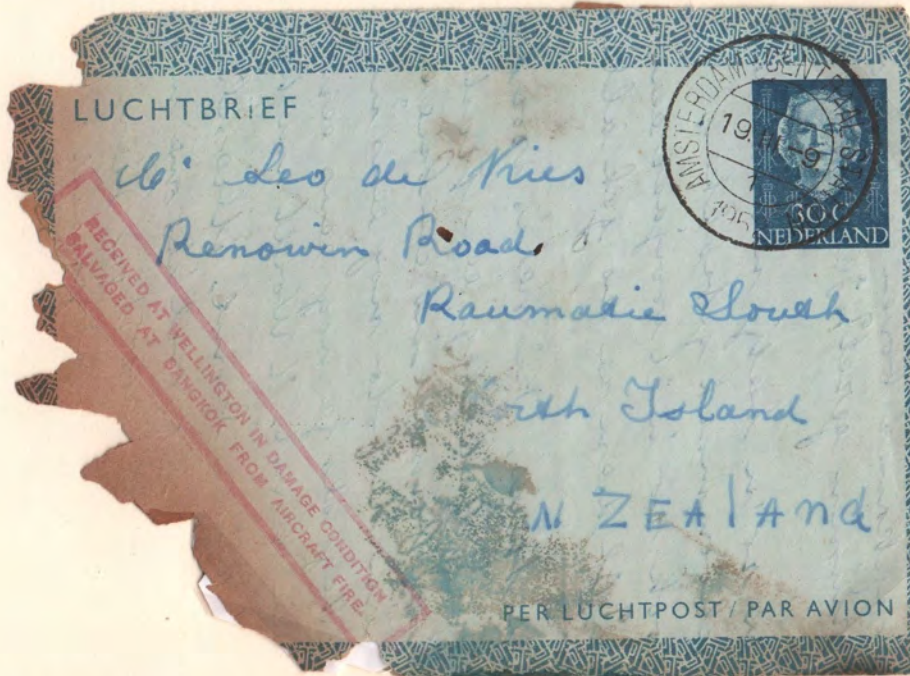 LUCHTBRIEF
AMSTERDAM CENTRAAL STA
19.
195
30 C
NEDERLAND
Leo de Vries
Renowin Road,
Raumatie South
Island
N ZEAlAnd
RECEIVED AT WELLINGTON IN DAMAGE CONDITION
SALVAGED AT BANGKOK FROM AIRCRAFT FIRE.
PER LUCHTPOST / PAR AVION